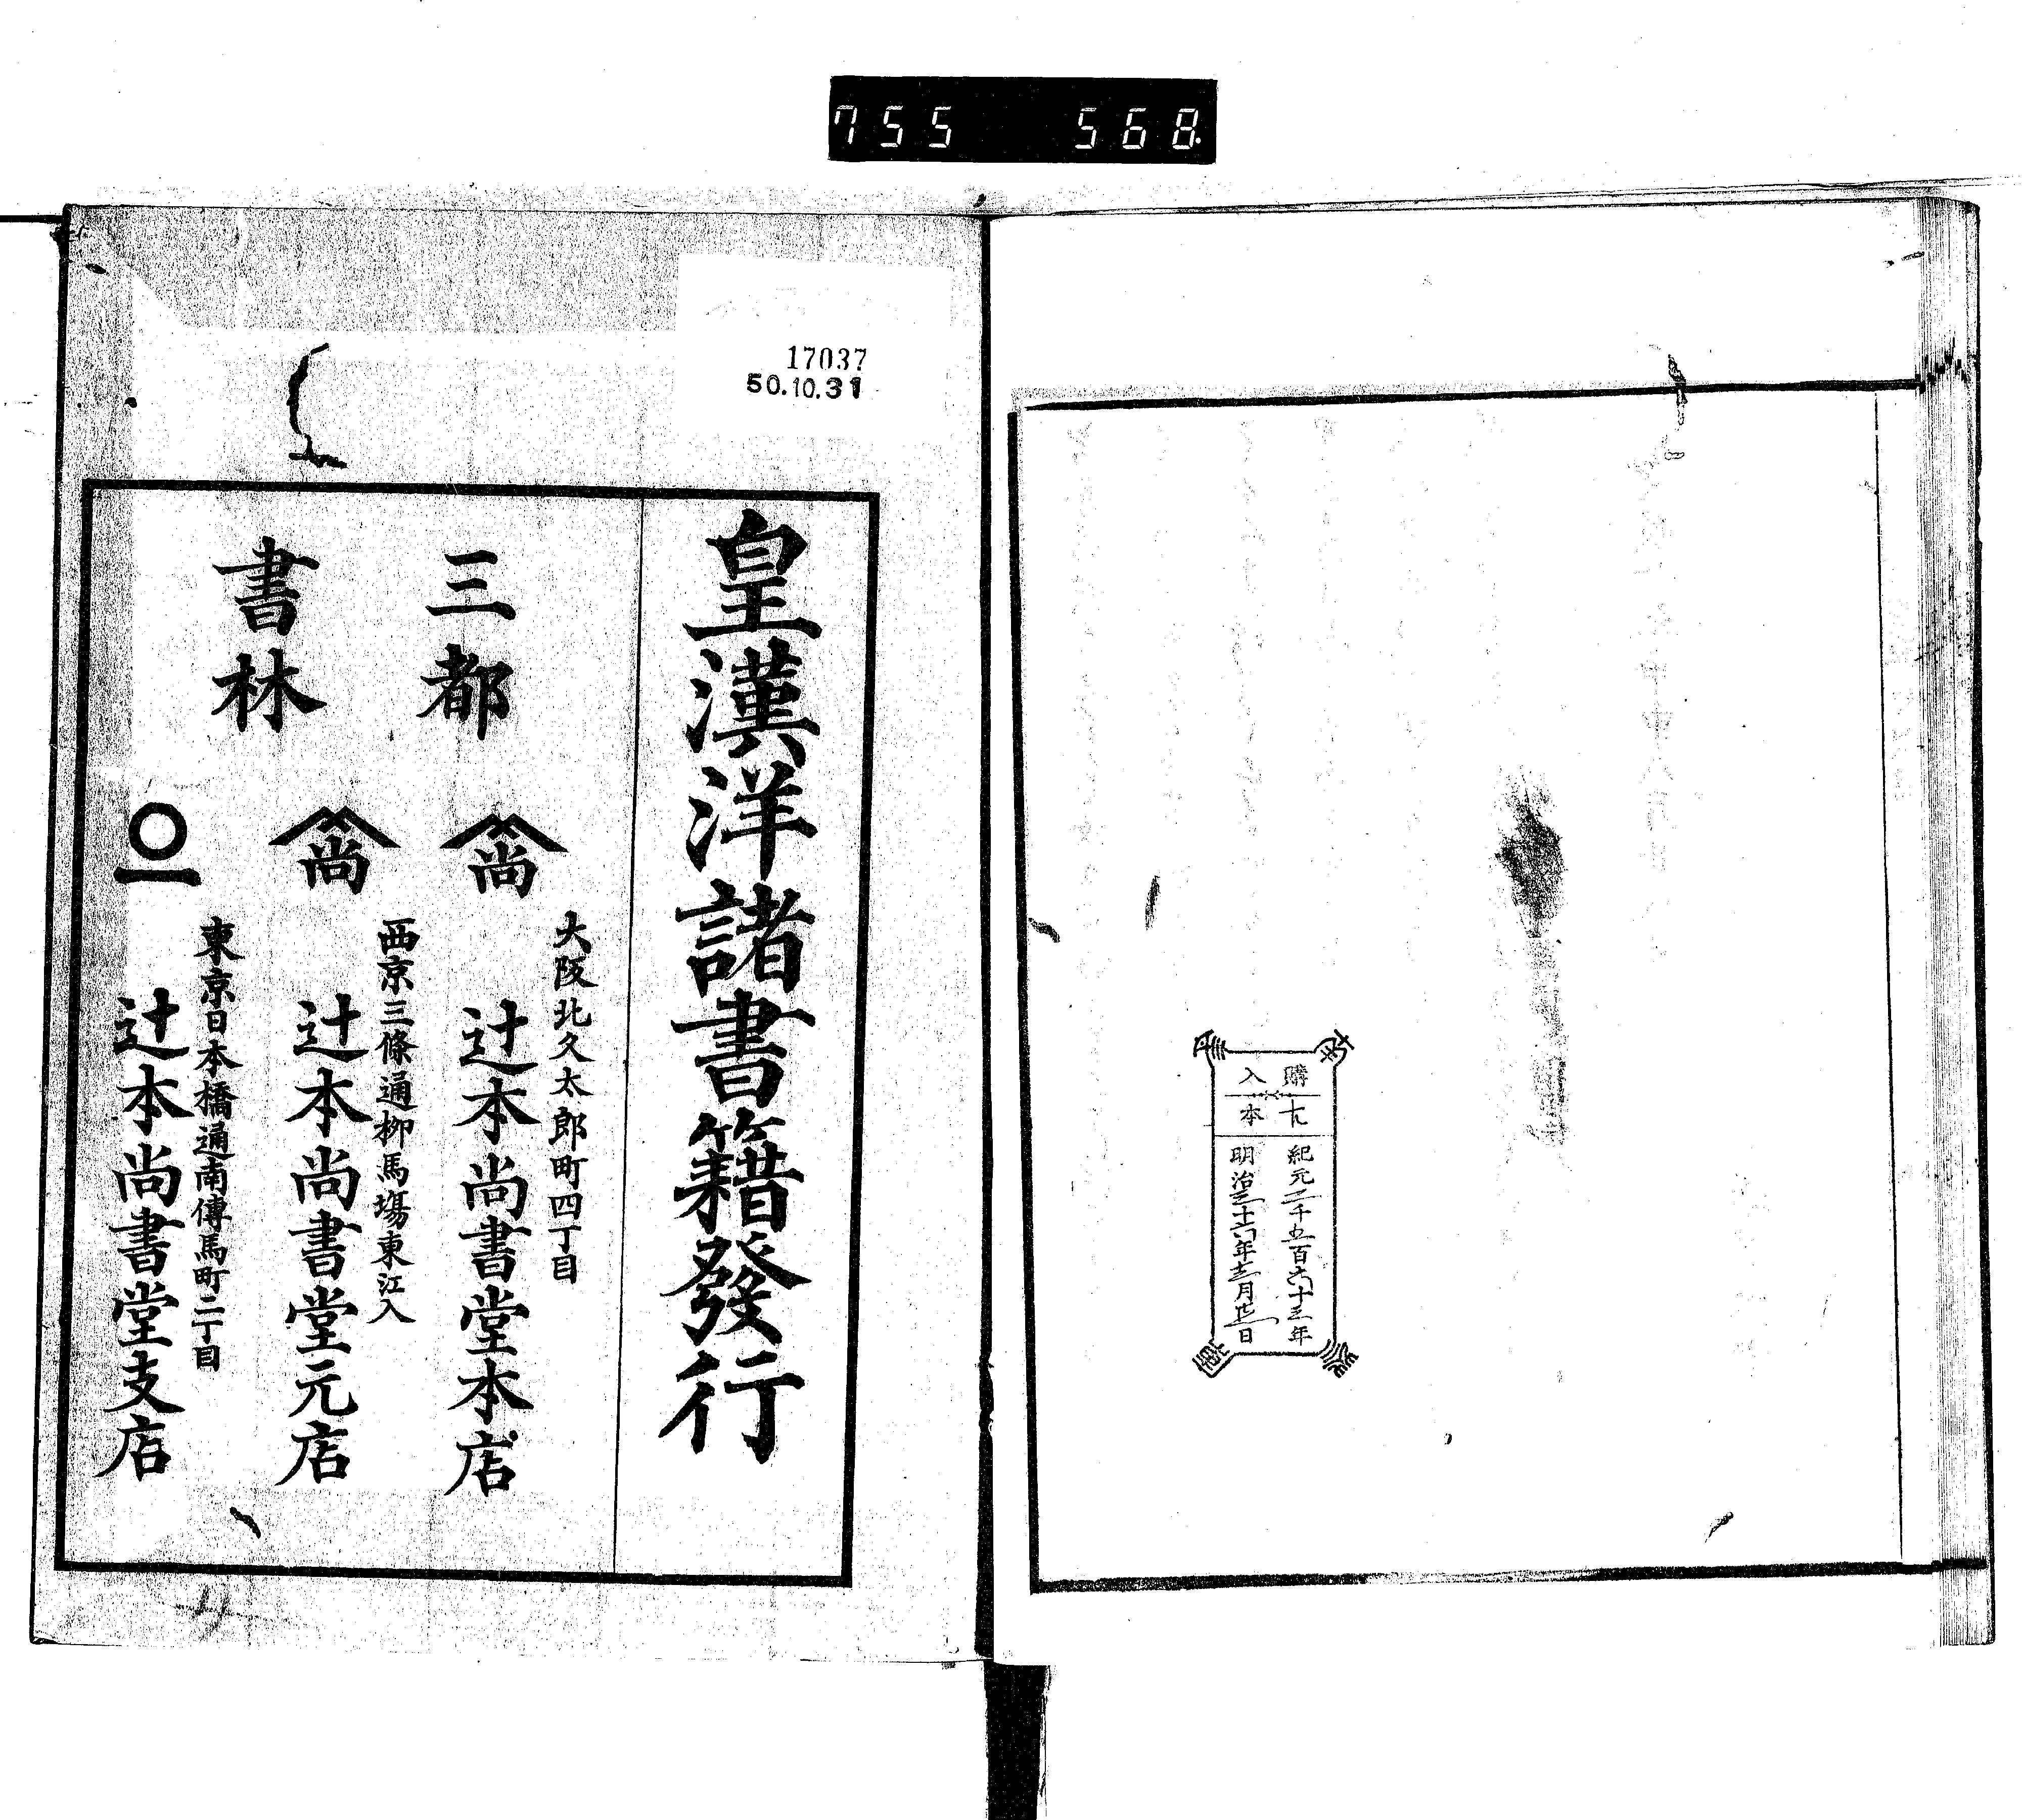 755 568
購入
本
紀元二千五百六十三年
明治三十六年十二月廿二日
17037
50.10.31
皇漢洋諸書籍發行
三都
書林
尚
大阪北久太郎町四丁目
辻本尚書堂本店
尚
西京三條通柳馬塲東江入
辻本尚書堂元店
東京日本橋通南傳馬町二丁目
辻本尚書堂支店